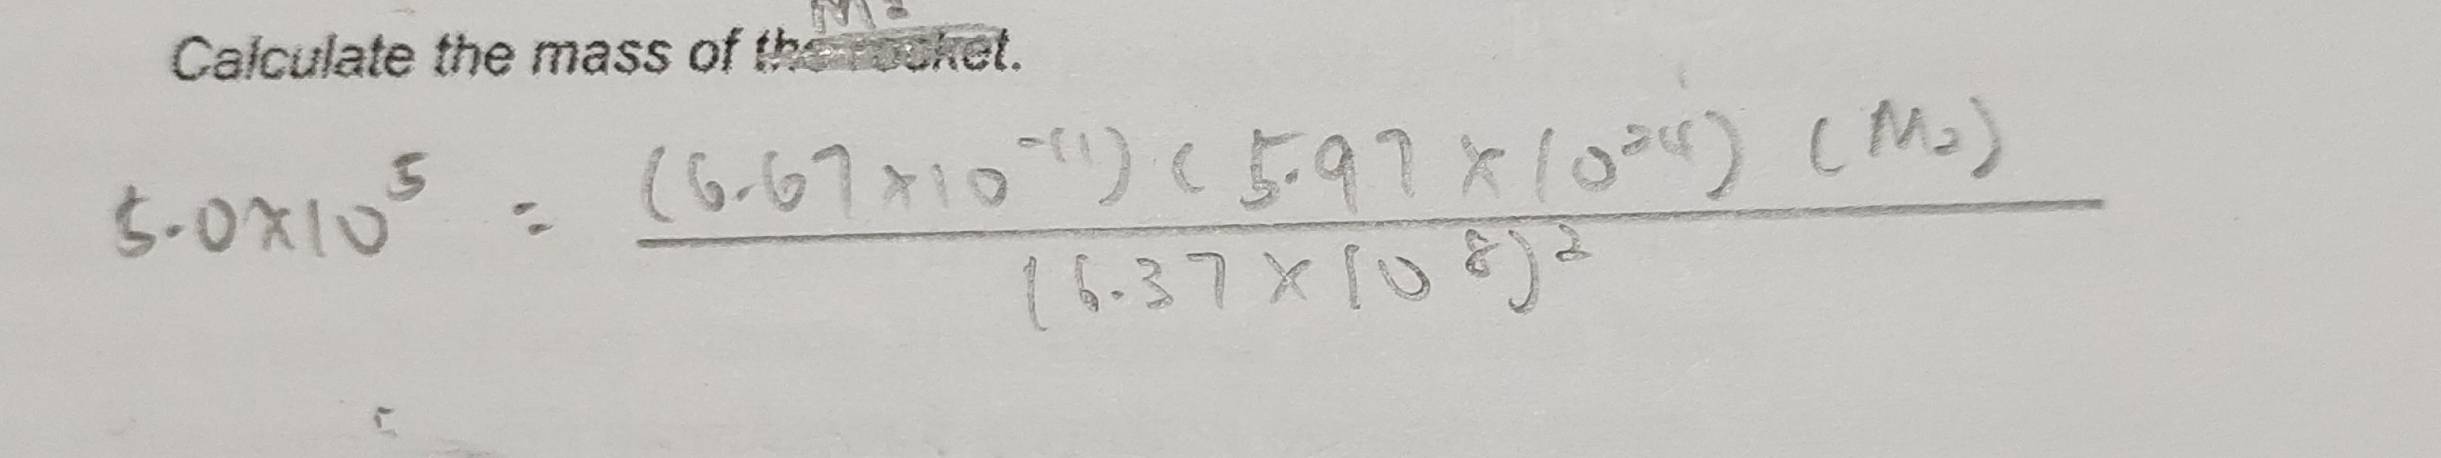 M₂
Calculate the mass of the rocket.
5.0×10⁵ = (6.67×10⁻¹¹)(5.97×10²⁴)(M₂)
(6.37×10⁸)²
=